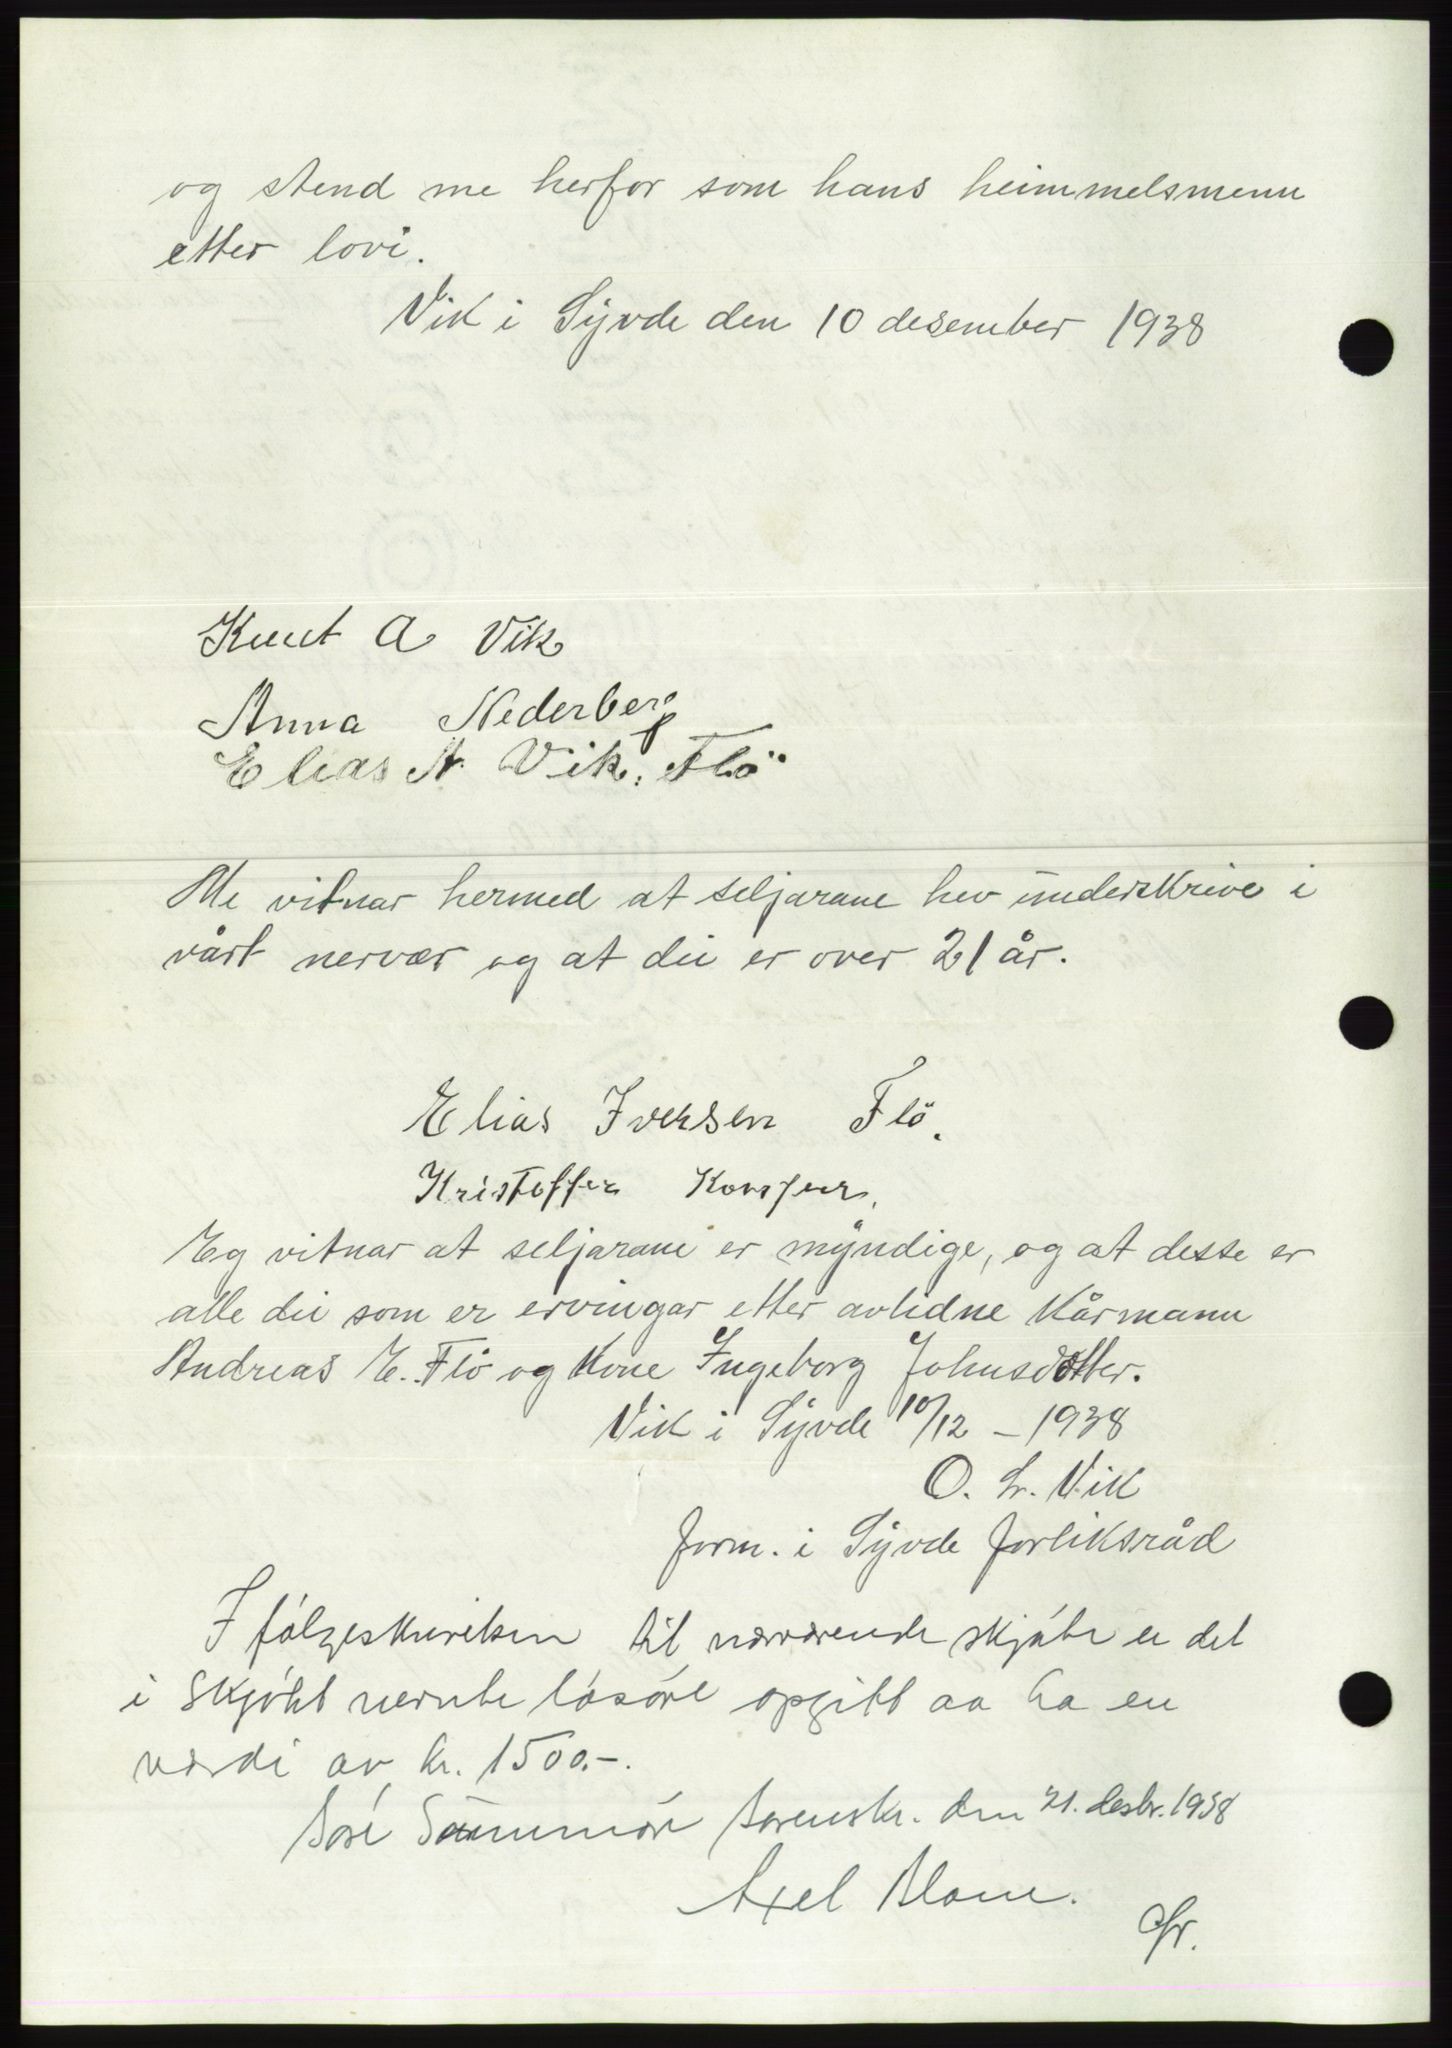 og stend me herfor som hans heimmelsmenn
etter lovi.
Vik i Syvde den 10 desember 1938
Knut A Vik
Anna Nederberg
Elias A. Vik. Flö
Me vitnar hermed at seljarane hev underskrive i
vårt nervær og at dei er over 21 år.
Elias Iversen Flö.
Kristoffer
Eg vitnar at seljarane er myndige, og at desse er
alle dei som er ervingar etter avlidne Kårmann
Andreas E. Flö og Kone Ingeborg Johnsdotter.
Vik i Syvde 10/12 - 1938
O. Vik
form. i Syvde forliksråd
I følgeskrivelsen til nærværende skjöte er det
i skjötet nevnte lösöre opgitt aa ha en
værdi av kr. 1500.-.
Söre Sunnmöre sorenskr. den 21. desbr. 1938
Axel Blom.